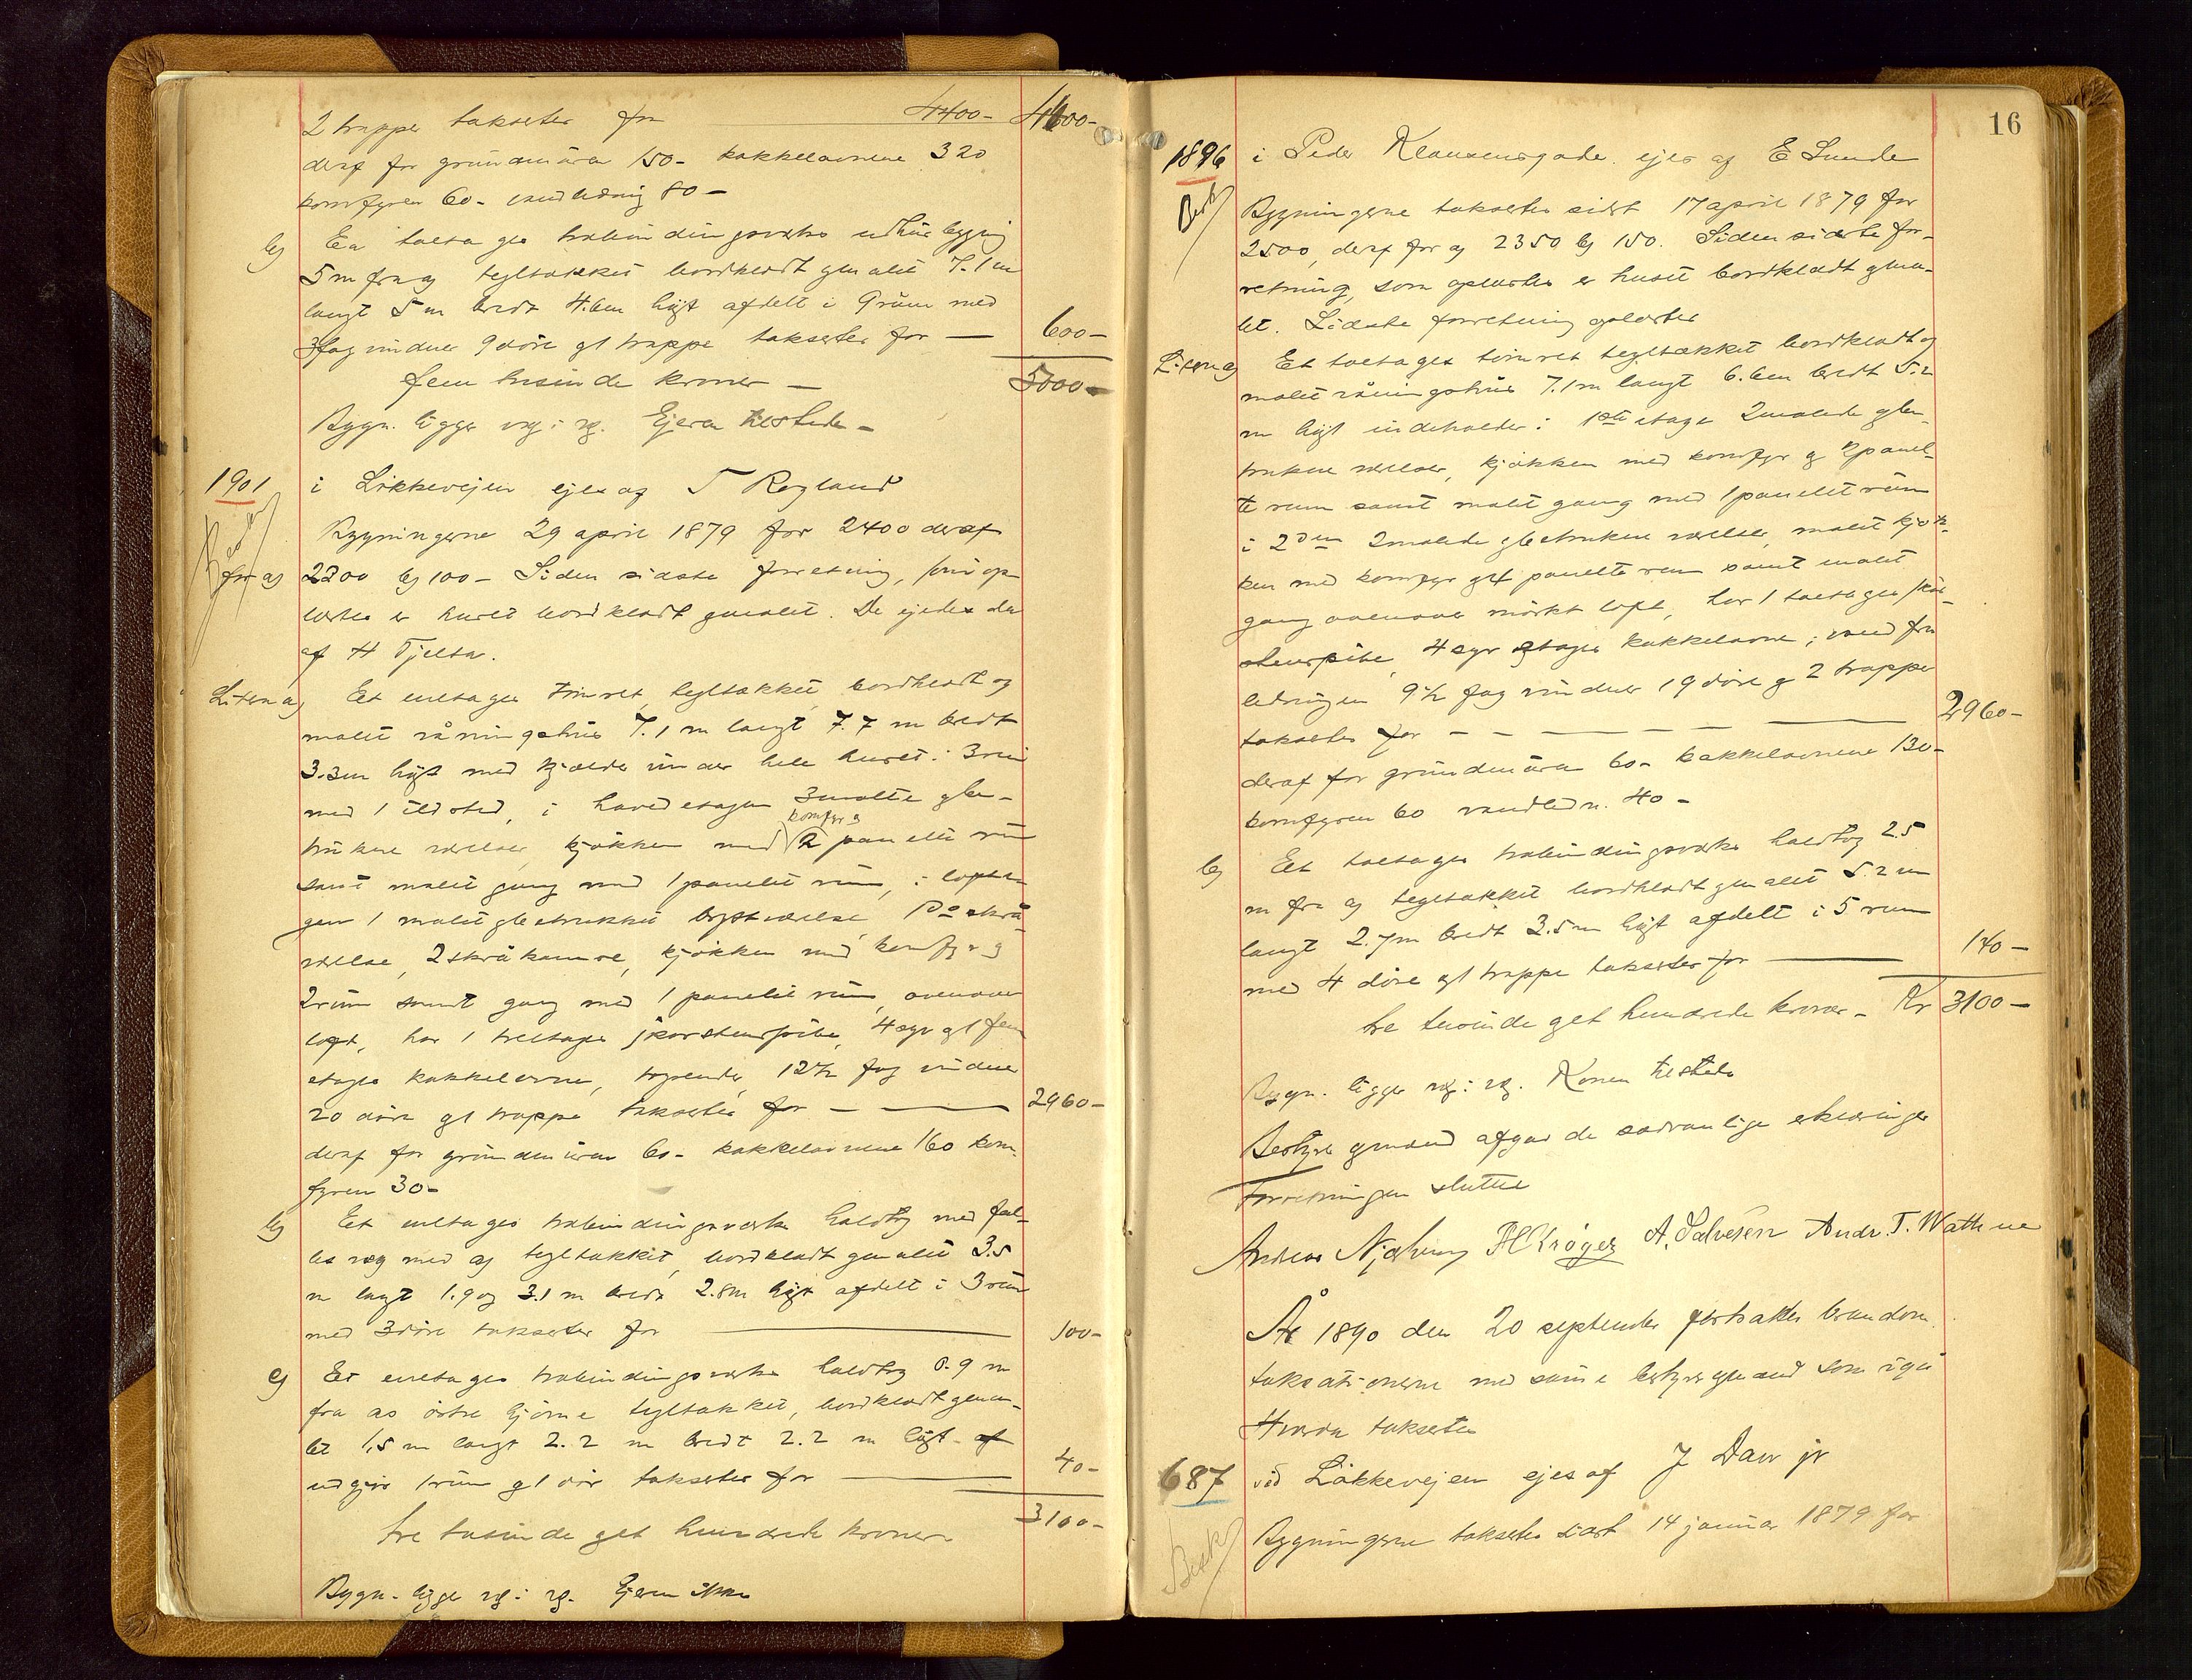 2 trapper takseres for 4400- 4400-
deraf for grundmuren 150- kakkelovnene 320
komfyren 60- vandledning 80-
b) En toetages trabindingsværks udhusbygnig
5 m fra a) tegltækket bordklædt g malet 7.1 m
langt 5 m bredt 4.6 m højt afdelt i 9 rum med
3 fag vinduer 9 døre g 1 trappe takseres for — 600-
fem tusinde kroner — 5000-
Bygn. ligger væg i væg. Ejeren tilstede -
1901 i Løkkevejen ejes af T Rogland
Bygningerne 29 april 1879 for 2400 deraf
for a) 2200 b) 100- Siden sidste forretning, som op-
læstes er huset bordklædt g malet. De ejedes da
af H Tjelta.
Litera a) Et enetages tømret, tegltækket, bordklædt og
malet våningshus 7.1 m langt 7.7 m bredt
3.3 m højt med kjælder under hele huset i 3 rum
med 1 ildsted, i hovedetagen 3 malte g be-
trukne værelser, kjøkken med komfyr g 2 panelte rum
samt malet gang med 1 panelet rum, i loftsta-
gen 1 malet g betrukket kvistværelse, 1 do skrå-
værelse, 2 skråkamre, kjøkken med komfyr g
2 rum samt gang med 1 panelet rum, ovenover
loft, har 1 treetages skorstenspibe, 4 syv g 1 fem
etages kakkelovne, 12 1/2 fag vinduer
20 døre g 1 trappe takseres for — 2960-
deraf for grundmuren 60- kakkelovnene 160 kom-
fyren 30-
b) Et enetages trabindingsværks halvtag med fæl-
les væg med a) tegltækket, bordklædt g malet 3.5
m langt 1.9 og 3.1 m bredt 2.8 m højt afdelt i 3 rum
med 3 døre takseres for — 100-
c) Et enetages trabindingsværks halvtag 0.9 m
fra a)s østre hjørne tegltækket, bordklædt g ma-
let 1.5 m langt 2.2 m bredt 2.2 m højt af
udgjør 1 rum g 1 dør takseres for — 40-
tre tusinde g et hundrede kroner 3100-
Bygn. ligger væg i væg. Ejeren ikke
16
1896 i Peder Klausensgade. ejes af E Sunde
Besk Bygningerne takseres sidst 17 april 1879 for
2500, deraf for a) 2350 b) 150. Siden sidste for-
retning, som oplæstes er huset bordklædt g ma-
let. Sidste forretning oplæstes
Litera a) Et toetages tømret tegltækket bordklædt og
malet våningshus 7.1 m langt 6.6 m bredt 5.2
m højt indeholder i 1ste etage 2 malede g be-
trukne værelser, kjøkken med komfyr g 2 panel-
te rum samt malet gang med 1 panelet rum
i 2den 2 malede g betrukne værelser, malet kjøk-
ken med komfyr g 1 panelte rum samt malet
gang ovenover mørkt loft, har 1 toetages skor-
stenspibe, 4 syv etages kakkelovne, vand fra
ledningen 9 1/2 fag vinduer 19 døre g 2 trapper
takseres for — 2960-
deraf for grundmuren 60- kakkelovnene 130-
komfyren 60 vandledn. 40-
b) Et toetages trabindingsværks halvtag 2.5
m fra a) tegltækket bordklædt g malet 5.2 m
langt 2.7 m bredt 3.5 m højt afdelt i 5 rum
med 4 døre g 1 trappe takseres for — 140-
tre tusinde g et hundrede kroner - Kr 3100-
Bygn. ligger væg i væg. Konen tilstede
Bestyrer g mænd afgav de sædvanlige erklæringer
Forretningen sluttet
Andreas Njølung P H Krøger A. Salvesen Andr. T. Wathne
År 1890 den 20 september fortsattes brandom-
taksationerne med samme bestyrer g mænd som igår
Hvorda takseres
687 ved Løkkevejen ejes af J Daw jr
Besk Bygningerne takseres sidst 14 januar 1879 for